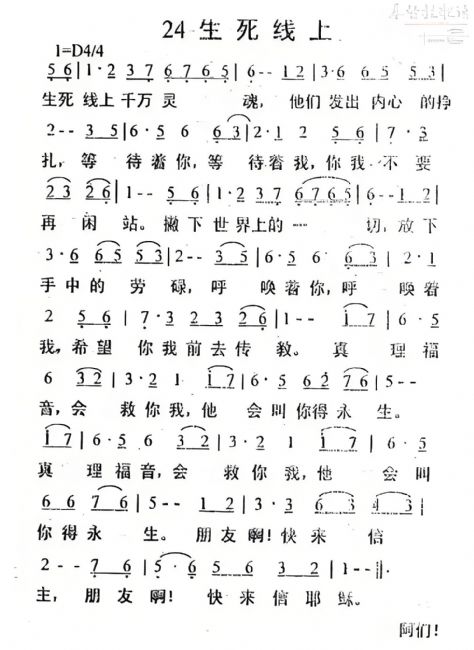 24 生 死 线 上
1=D4/4
5 6 | 1 · 2 3 7 6 7 6 5 | 6 - - 1 2 | 3 · 6 6 5 5 3 |
生死 线上 千万 灵 魂, 他们 发出 内心 的挣
2 - - 3 5 | 6 · 5 6 6 3 | 2 · 1 2 5 6 | 7 · 6 5 6 7 |
扎, 等 待着你, 等 待着我, 你我 不 要
2 3 2 6 | 1 - - 5 6 | 1 · 2 3 7 6 7 6 5 | 6 - - 1 2 |
再 闲 站。 撇下 世界上的 一 切, 放下
3 · 6 6 5 5 3 | 2 - - 3 5 | 6 · 5 6 6 3 | 2 · 1
手中的 劳 碌, 呼 唤着你, 呼 唤着
2 5 6 | 7 · 3 2 3 2 6 | 1 - - 1 7 | 6 · 5
我, 希望 你我前去传 教。 真 理福
6 3 2 | 3 · 2 1 1 7 | 6 · 5 6 2 7 6 | 5 - -
音, 会 救你我, 他 会叫你得永 生。
1 7 | 6 · 5 6 3 2 | 3 · 2 1 1 7 | 6 · 5
真 理福音, 会 救你我, 他 会叫
6 6 7 6 | 5 - - 1 2 | 3 · 3 6 3 4 3 |
你得永 生。 朋友 啊! 快来 信
2 - - 7 6 | 5 · 5 6 5 3 2 | 1 - - :||
主, 朋友 啊! 快来信耶 稣。
阿们!